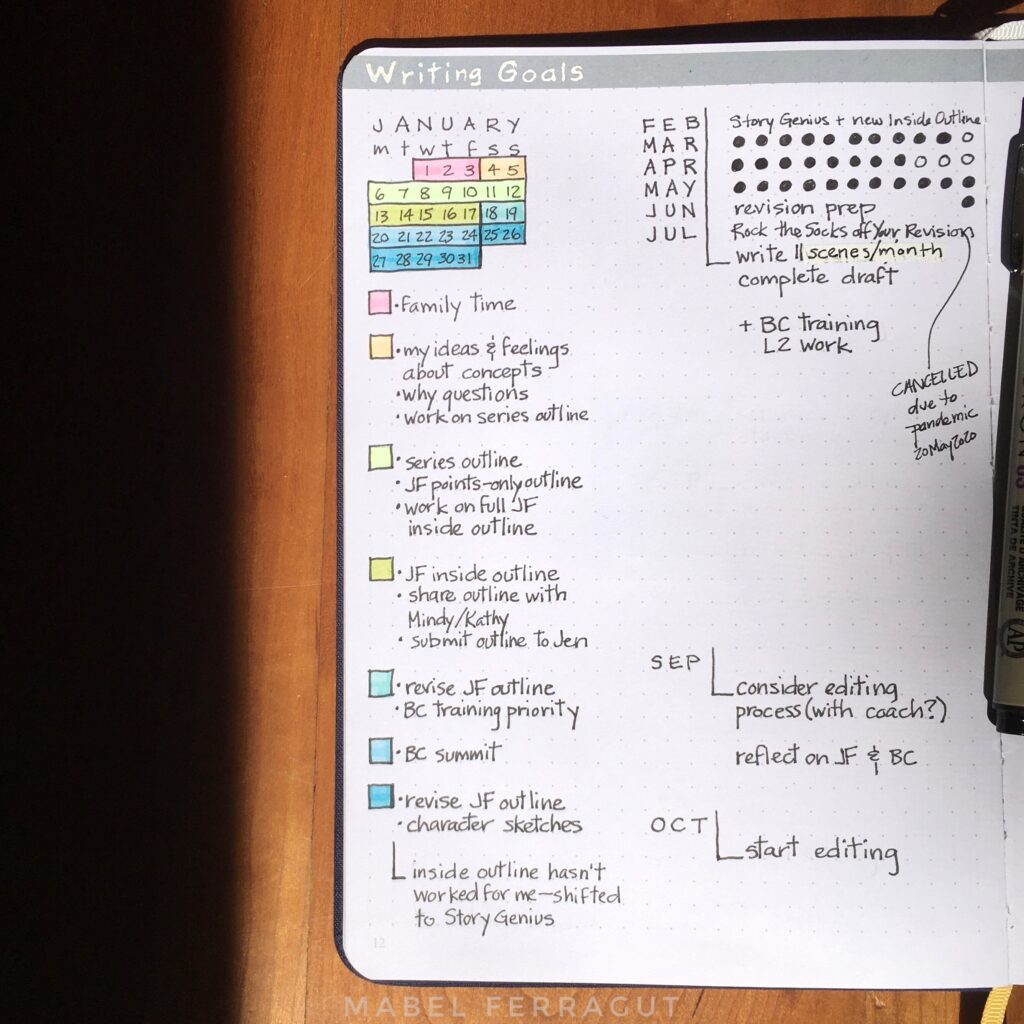 Writing Goals
JANUARY
m t w t f s s
1 2 3 4 5
6 7 8 9 10 11 12
13 14 15 16 17 18 19
20 21 22 23 24 25 26
27 28 29 30 31
• family time
• my ideas & feelings
about concepts
• why questions
• work on series outline
• series outline
• JF points-only outline
• work on full JF
inside outline
• JF inside outline
• share outline with
Mindy/Kathy
• submit outline to Jen
• revise JF outline
• BC training priority
• BC summit
• revise JF outline
• character sketches
inside outline hasn't
worked for me—shifted
to Story Genius
12
FEB
MAR
APR
MAY
JUN
JUL
Story Genius + new Inside Outline
revision prep
Rock the Socks off Your Revision
write 11 scenes/month
complete draft
+ BC training
L2 work
CANCELLED
due to
pandemic
20May2020
SEP
consider editing
process (with coach?)
reflect on JF & BC
OCT
start editing
TINTA DE ARCHIVE
AP
MABEL FERRAGUT